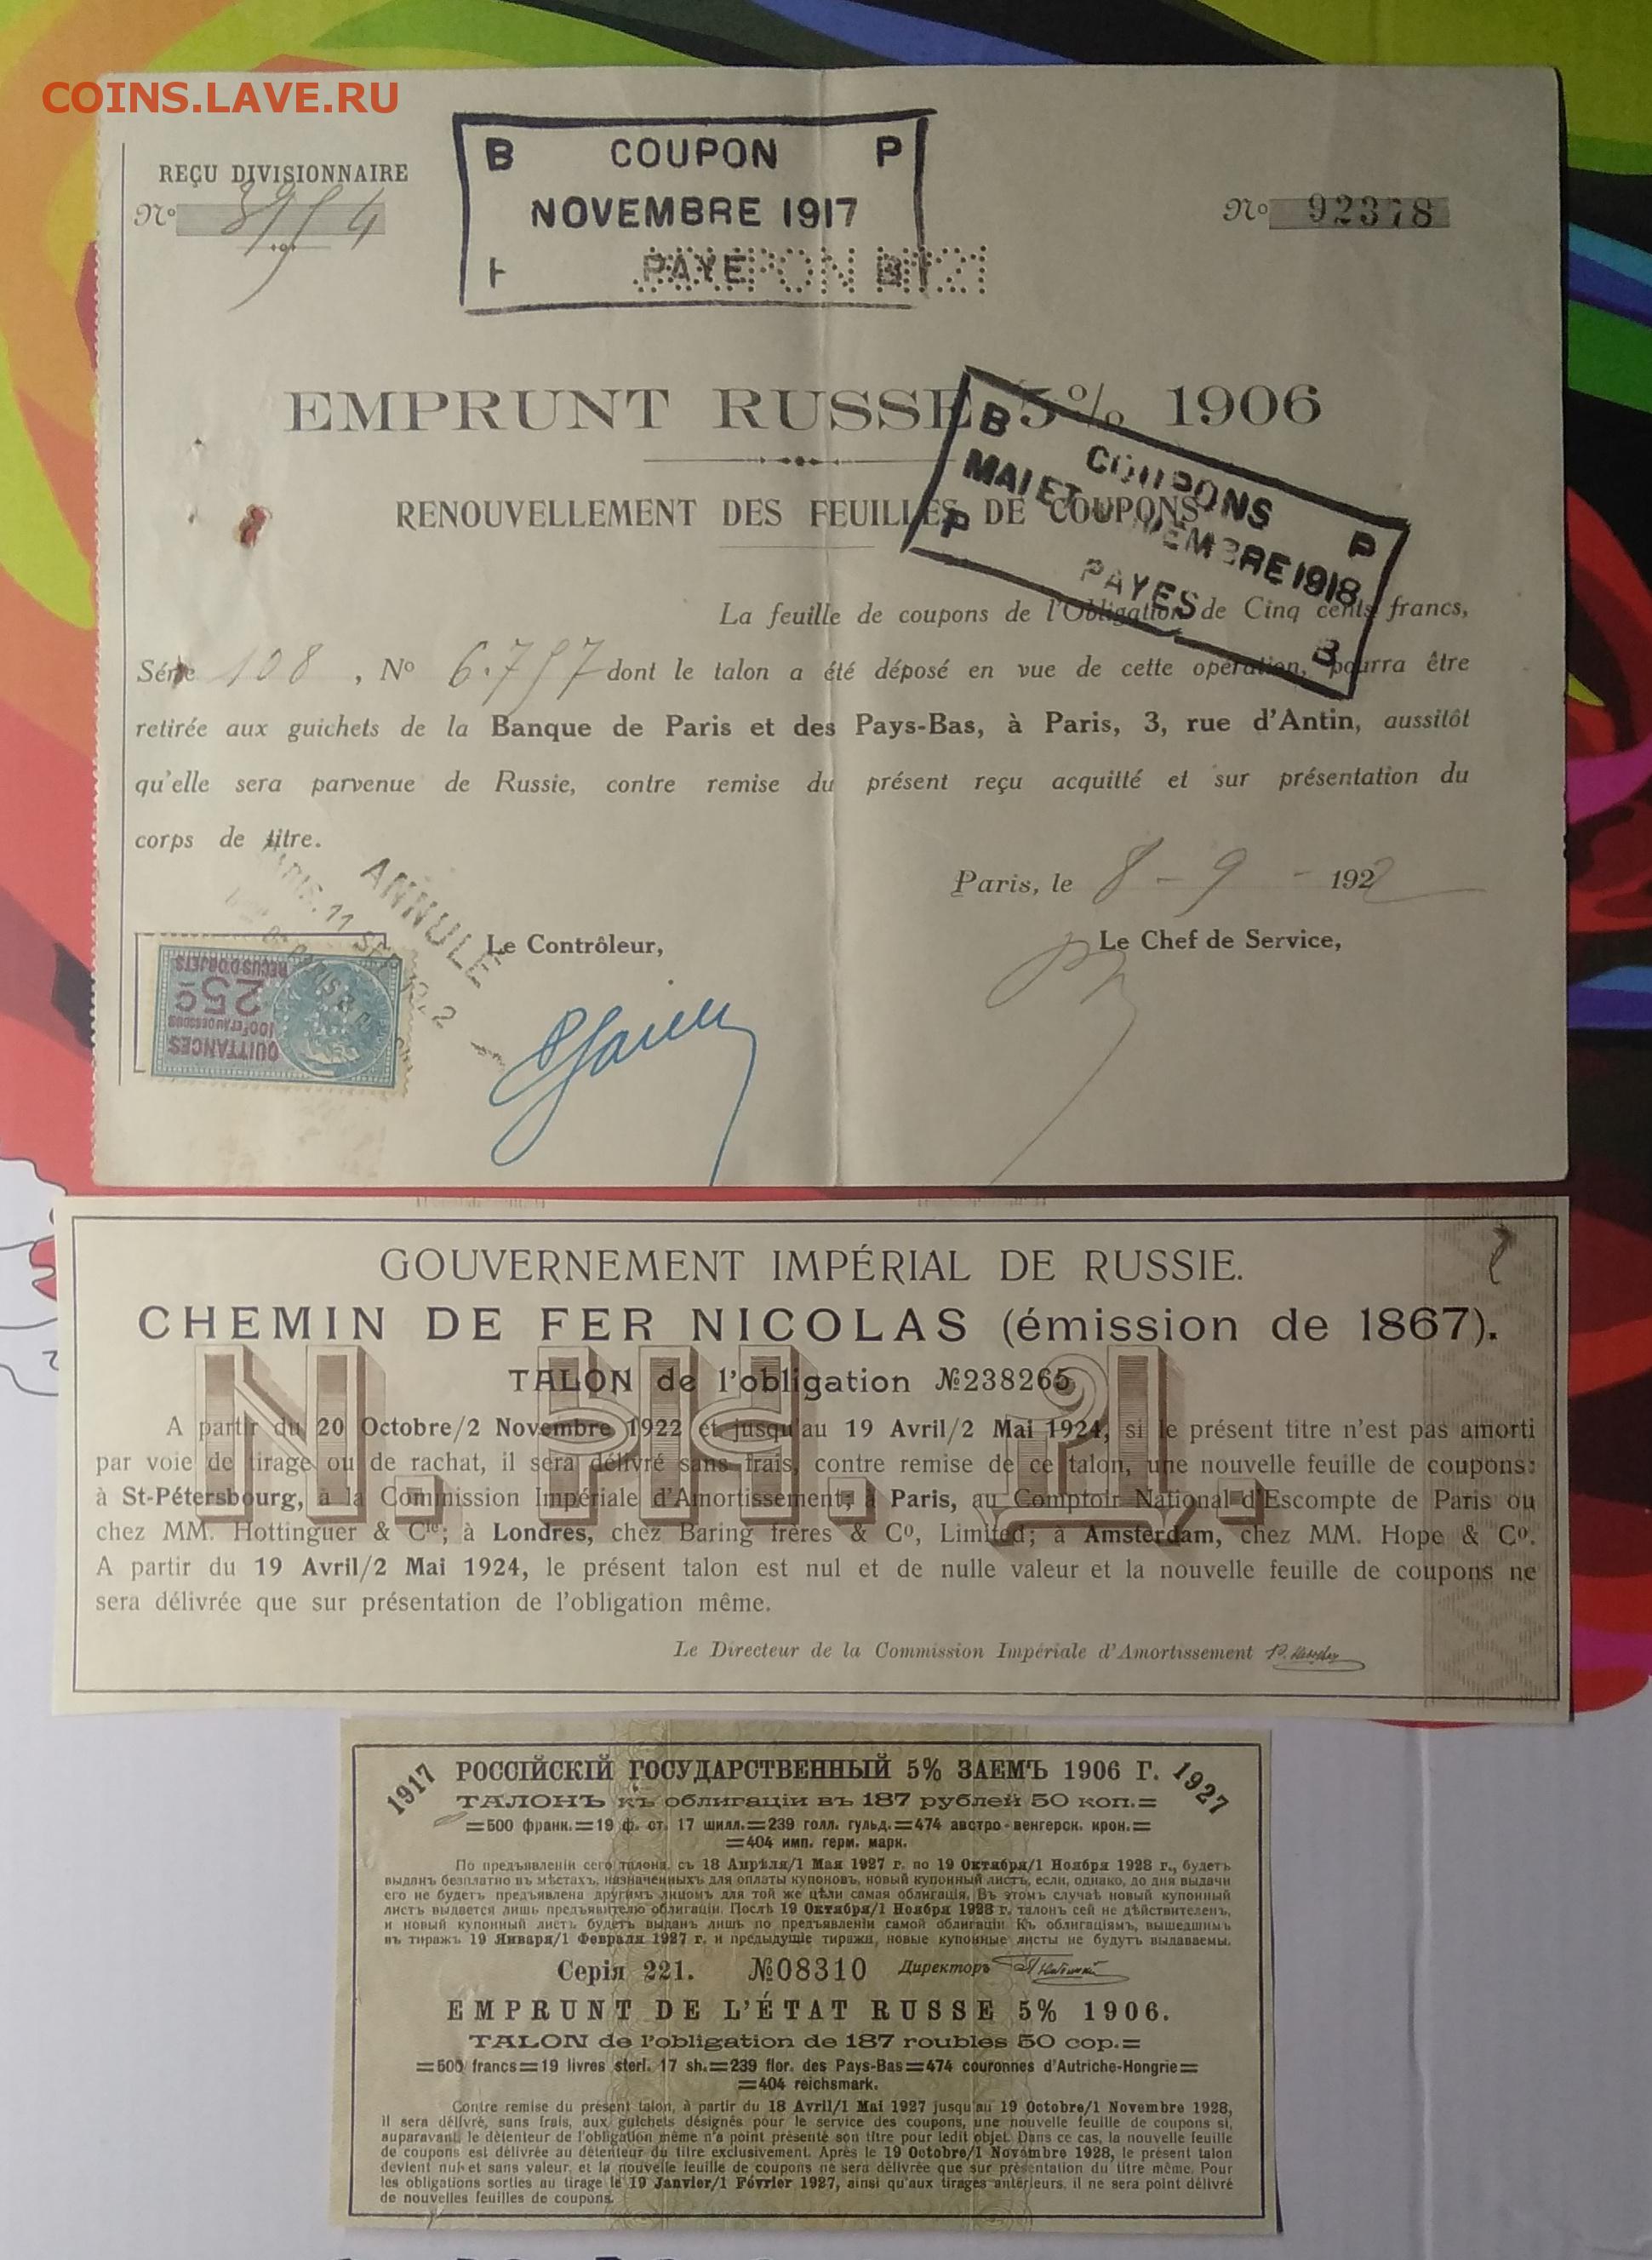 COINS.LAVE.RU
REÇU DIVISIONNAIRE
No
B COUPON P
NOVEMBRE 1917
PAYE
No 92378
EMPRUNT RUSSE 5% 1906
RENOUVELLEMENT DES FEUILLES DE COUPONS
B COUPONS P
MAI ET NOVEMBRE 1918
P PAYES B
La feuille de coupons de l'Obligation de Cinq cents francs,
Série 108, No 6.757 dont le talon a été déposé en vue de cette opération, pourra être
retirée aux guichets de la Banque de Paris et des Pays-Bas, à Paris, 3, rue d'Antin, aussitôt
qu'elle sera parvenue de Russie, contre remise du présent reçu acquitté et sur présentation du
corps de titre.
Paris, le 8-9-1922
ANNULÉ
Le Contrôleur,
Le Chef de Service,
QUITTANCES
100F ET AU DESSOUS
25c
REÇUS D'OBJETS
GOUVERNEMENT IMPÉRIAL DE RUSSIE.
CHEMIN DE FER NICOLAS (émission de 1867).
TALON de l'obligation №238265
A partir du 20 Octobre/2 Novembre 1922 et jusqu'au 19 Avril/2 Mai 1924, si le présent titre n'est pas amorti
par voie de tirage ou de rachat, il sera délivré sans frais, contre remise de ce talon, une nouvelle feuille de coupons:
à St-Pétersbourg, à la Commission Impériale d'Amortissement; à Paris, au Comptoir National d'Escompte de Paris ou
chez MM. Hottinguer & Cie; à Londres, chez Baring frères & Co, Limited; à Amsterdam, chez MM. Hope & Co.
A partir du 19 Avril/2 Mai 1924, le présent talon est nul et de nulle valeur et la nouvelle feuille de coupons ne
sera délivrée que sur présentation de l'obligation même.
Le Directeur de la Commission Impériale d'Amortissement
1917 РОССІЙСКІЙ ГОСУДАРСТВЕННЫЙ 5% ЗАЕМЪ 1906 Г. 1927
ТАЛОНЪ къ облигаціи въ 187 рублей 50 коп.=
=500 франк.=19 ф. ст. 17 шилл.=239 голл. гульд.=474 австро-венгерск. крон.=
=404 имп. герм. марк.
По предъявленіи сего талона, съ 18 Апрѣля/1 Мая 1927 г. по 19 Октября/1 Ноября 1928 г., будетъ
выданъ безплатно въ мѣстахъ, назначенныхъ для оплаты купоновъ, новый купонный листъ, если, однако, до дня выдачи
его не будетъ предъявлена другимъ лицомъ для той же цѣли самая облигація. Въ этомъ случаѣ новый купонный
листъ выдается лишь предъявителю облигаціи. Послѣ 19 Октября/1 Ноября 1928 г. талонъ сей не дѣйствителенъ,
и новый купонный листъ будетъ выданъ лишь по предъявленіи самой облигаціи. Къ облигаціямъ, вышедшимъ
въ тиражъ 19 Января/1 Февраля 1927 г. и предыдущіе тиражи, новые купонные листы не будутъ выдаваемы.
Серія 221. №08310 Директоръ
EMPRUNT DE L'ÉTAT RUSSE 5% 1906.
TALON de l'obligation de 187 roubles 50 cop.=
=500 francs=19 livres sterl. 17 sh.=239 flor. des Pays-Bas=474 couronnes d'Autriche-Hongrie=
=404 reichsmark.
Contre remise du présent talon, à partir du 18 Avril/1 Mai 1927 jusqu'au 19 Octobre/1 Novembre 1928,
il sera délivré, sans frais, aux guichets désignés pour le service des coupons, une nouvelle feuille de coupons si,
auparavant, le détenteur de l'obligation même n'a point présenté son titre pour ledit objet. Dans ce cas, la nouvelle feuille
de coupons est délivrée au détenteur du titre exclusivement. Après le 19 Octobre/1 Novembre 1928, le présent talon
devient nul et sans valeur, et la nouvelle feuille de coupons ne sera délivrée que sur présentation du titre même. Pour
les obligations sorties au tirage le 19 Janvier/1 Février 1927, ainsi qu'aux tirages antérieurs, il ne sera point délivré
de nouvelles feuilles de coupons.